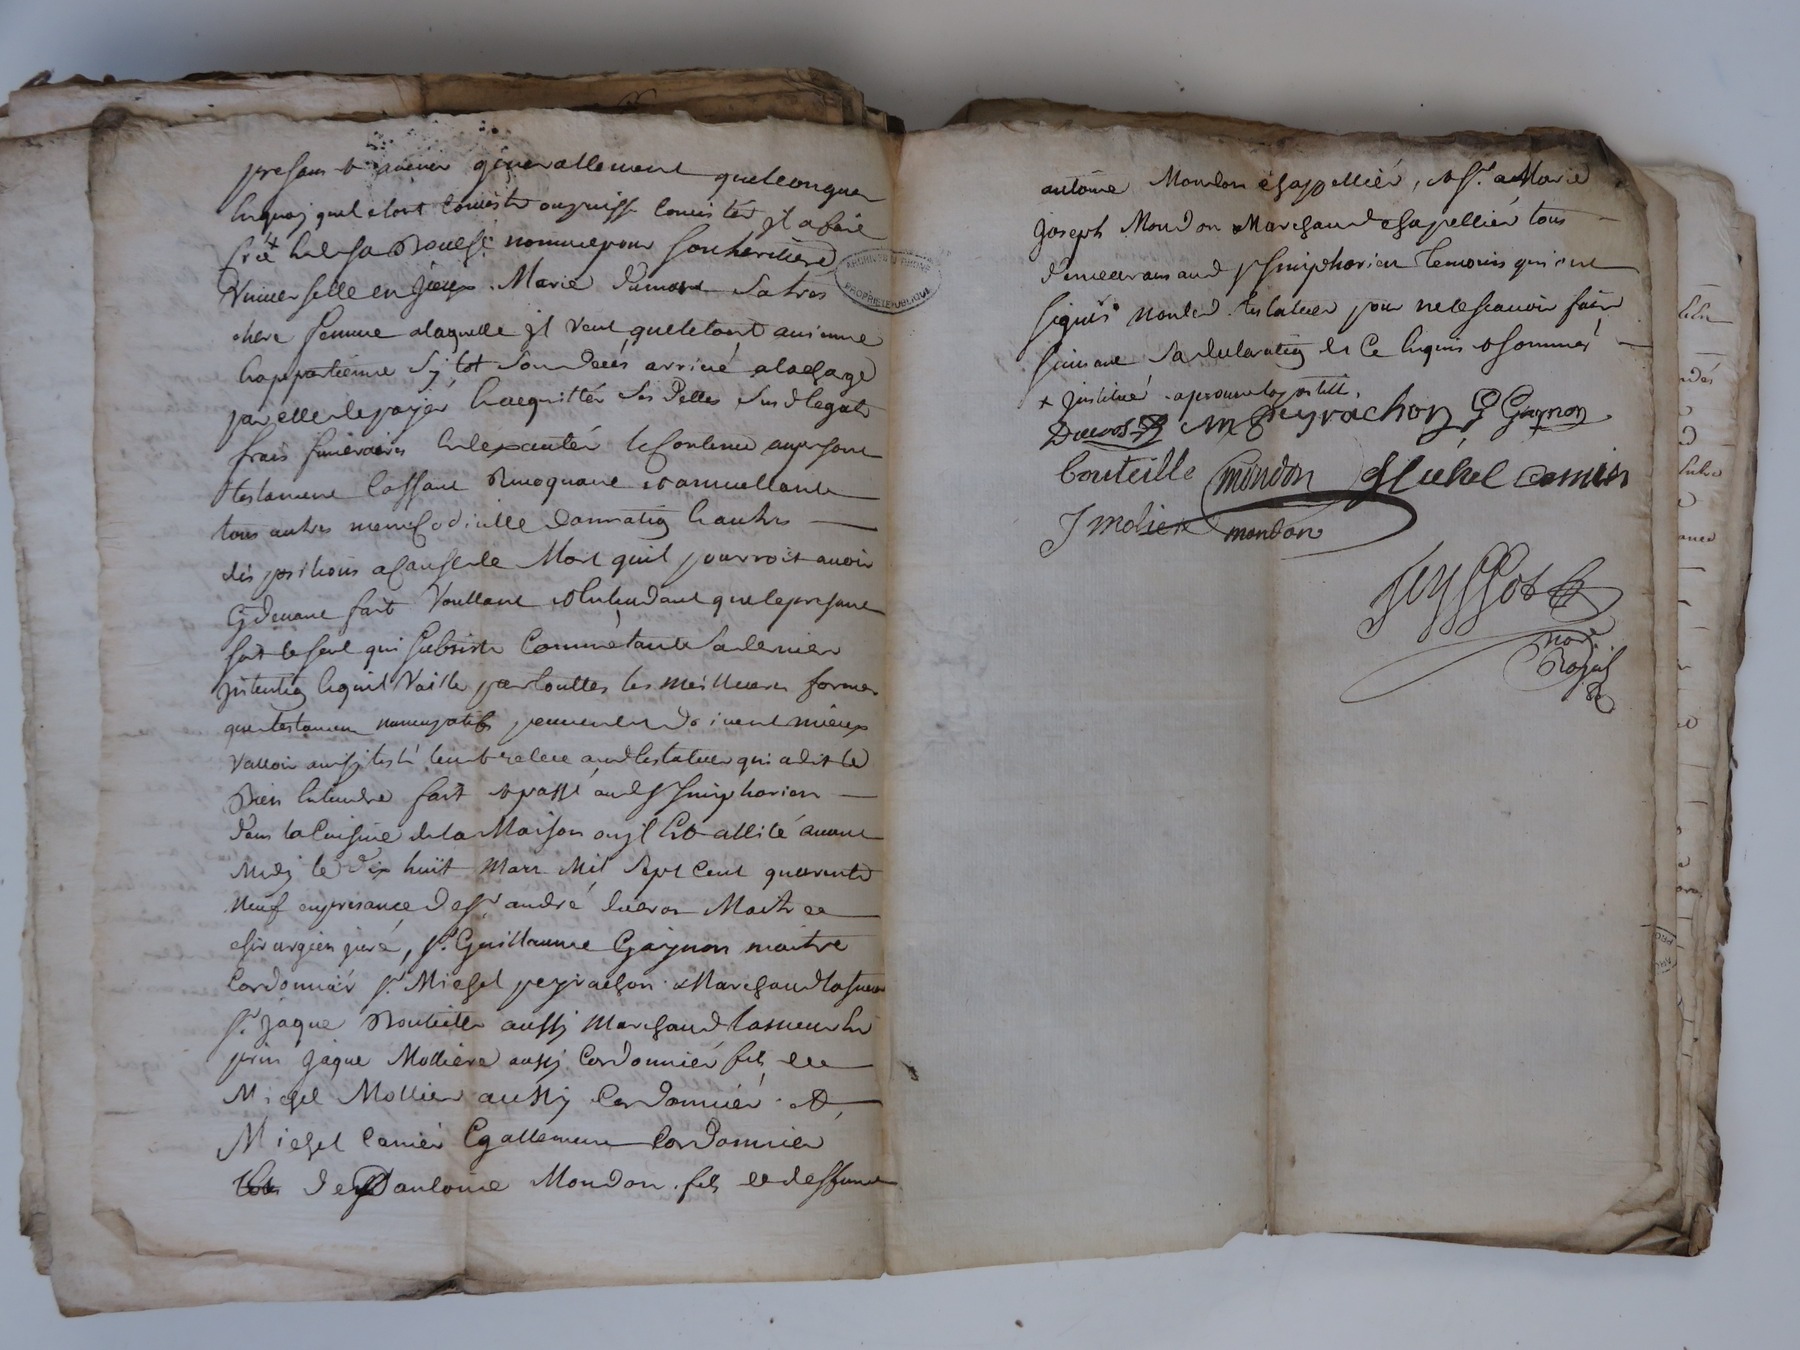 presans & avenir generallement quelconques
En quoy quil doit consister ou puisse consister Il a fait
creé + & de sa Bouche nommé pour son heritiere
Vniverselle en Jceux Marie dumont sa tres
chere femme a laquelle Jl veut que le tout avienne
& appartienne sy tot son deces arrivé a la charge
par elle de payer & acquitter ses dettes sus d legats
frais funeraires & dexecuter le contenu au present
testament Cassant Revoquant & annullant
tous autres mem Codicille donnation & autres
dispositions a cause de Mort quil pourroit avoir
Cy devant fait Voullant & Entendant que le present
soit le seul qui subsiste Comme etant sa derniere
Jntention & quil Vaille par touttes les meilleures formes
que testament nuncupatif peuvent & doivent mieux
Valloir ainsy testé leu & releu aud testateur qui a dit le
Bien Entendre fait & passé aud St Simphorien
dans la Cuisine de la Maison ou jl Est allité avant
midy le dix huit Mars Mil Sept Cent quarente
Neuf en presance de sr andré ducros Maitre
chirurgien juré, sr Guillaume Gaignon maitre
Cordonnier sr Michel peyrachon Marchand taneur
sr Jaque Bouteille aussy Marchand tanneur
Jaque Mollière aussy Cordonnier fils de
Michel Mollier aussy Cordonnier &
Michel Camier Egallement Cordonnier
de sr antoine Mondon fils de deffunt
antoine Mondon chappellier, & sr a Marie
Joseph Mondon Marchand chappellier tous
demeurans aud st Simphorien temoins qui ont
signés non led testateur pour ne le scavoir faire
suivant sa declaration de ce Enquis & sommés
+ jnstitué aprouve la postille.
Ducros M Peyrachon G Gaynon
bouteille mondon Michel Camier
J molier mondon
Seyssot
nore
Royal